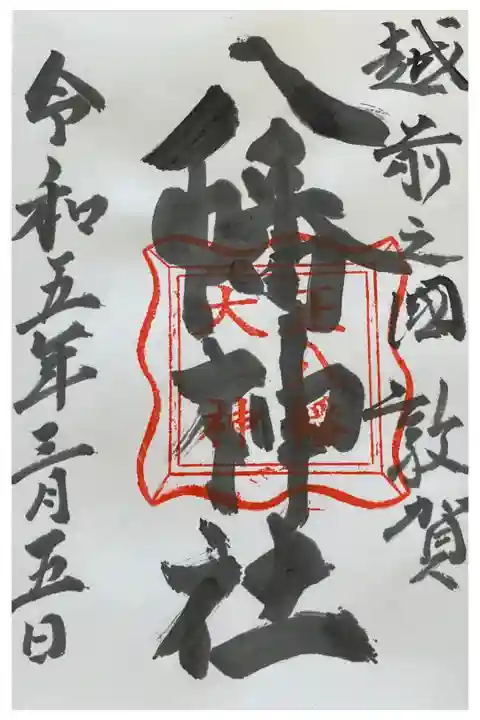 越前之国 敦賀
八幡神社
令和五年三月五日